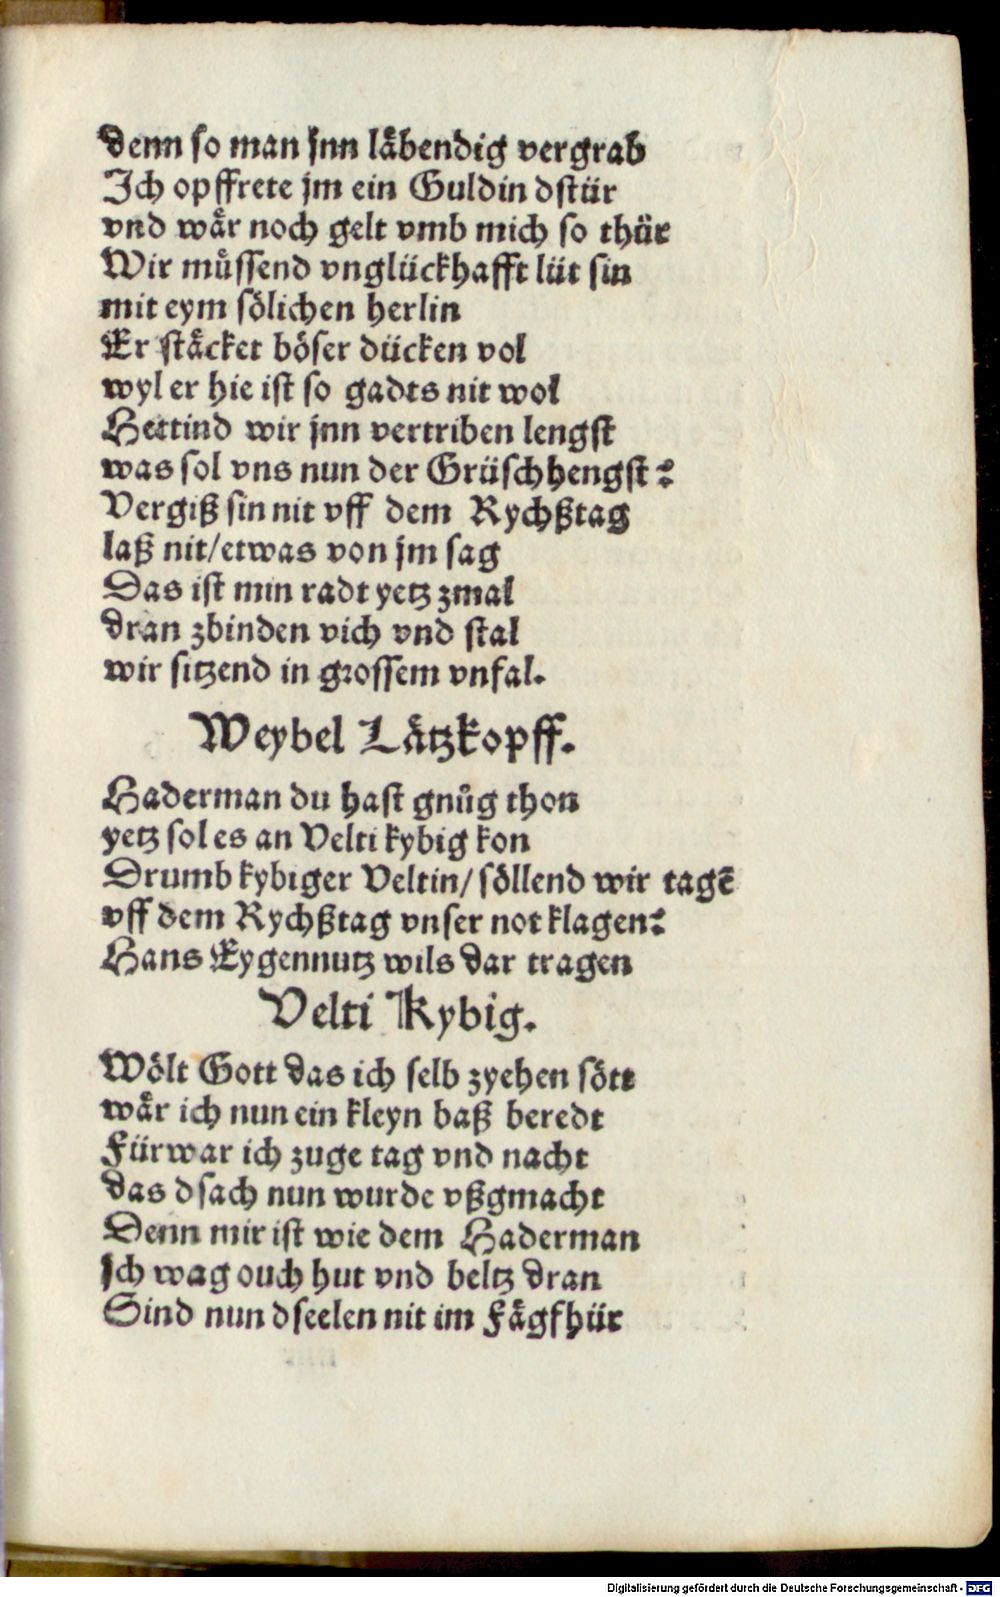 denn so man jnn läbendig vergrab
Ich opffrete jm ein Guldin dstür
vnd wår noch gelt vmb mich so thür
Wir můssend vnglückhafft lüt sin
mit eym sölichen herlin
Er ståcket böser dücken vol
wyl er hie ist so gadts nit wol
Hettind wir jnn vertriben lengst
was sol vns nun der Grüschhengst?
Vergiß sin nit vff dem Rychßtag
laß nit/etwas von jm sag
Das ist min radt yetz zmal
dran zbinden vich vnd stal
wir sitzend in grossem vnfal.
Weybel Låtzkopff.
Haderman du hast gnůg thon
yetz sol es an Velti kybig kon
Drumb kybiger Veltin/ söllend wir tagē
vff dem Rychßtag vnser not klagen?
Hans Eygennutz wils dar tragen
Velti Kybig.
Wölt Gott das ich selb zyehen sött
wår ich nun ein kleyn baß beredt
Fürwar ich zuge tag vnd nacht
das dsach nun wurde vßgmacht
Denn mir ist wie dem Haderman
Ich wag ouch hut vnd beltz dran
Sind nun dseelen nit im Fågfhür
Digitalisierung gefördert durch die Deutsche Forschungsgemeinschaft - DFG